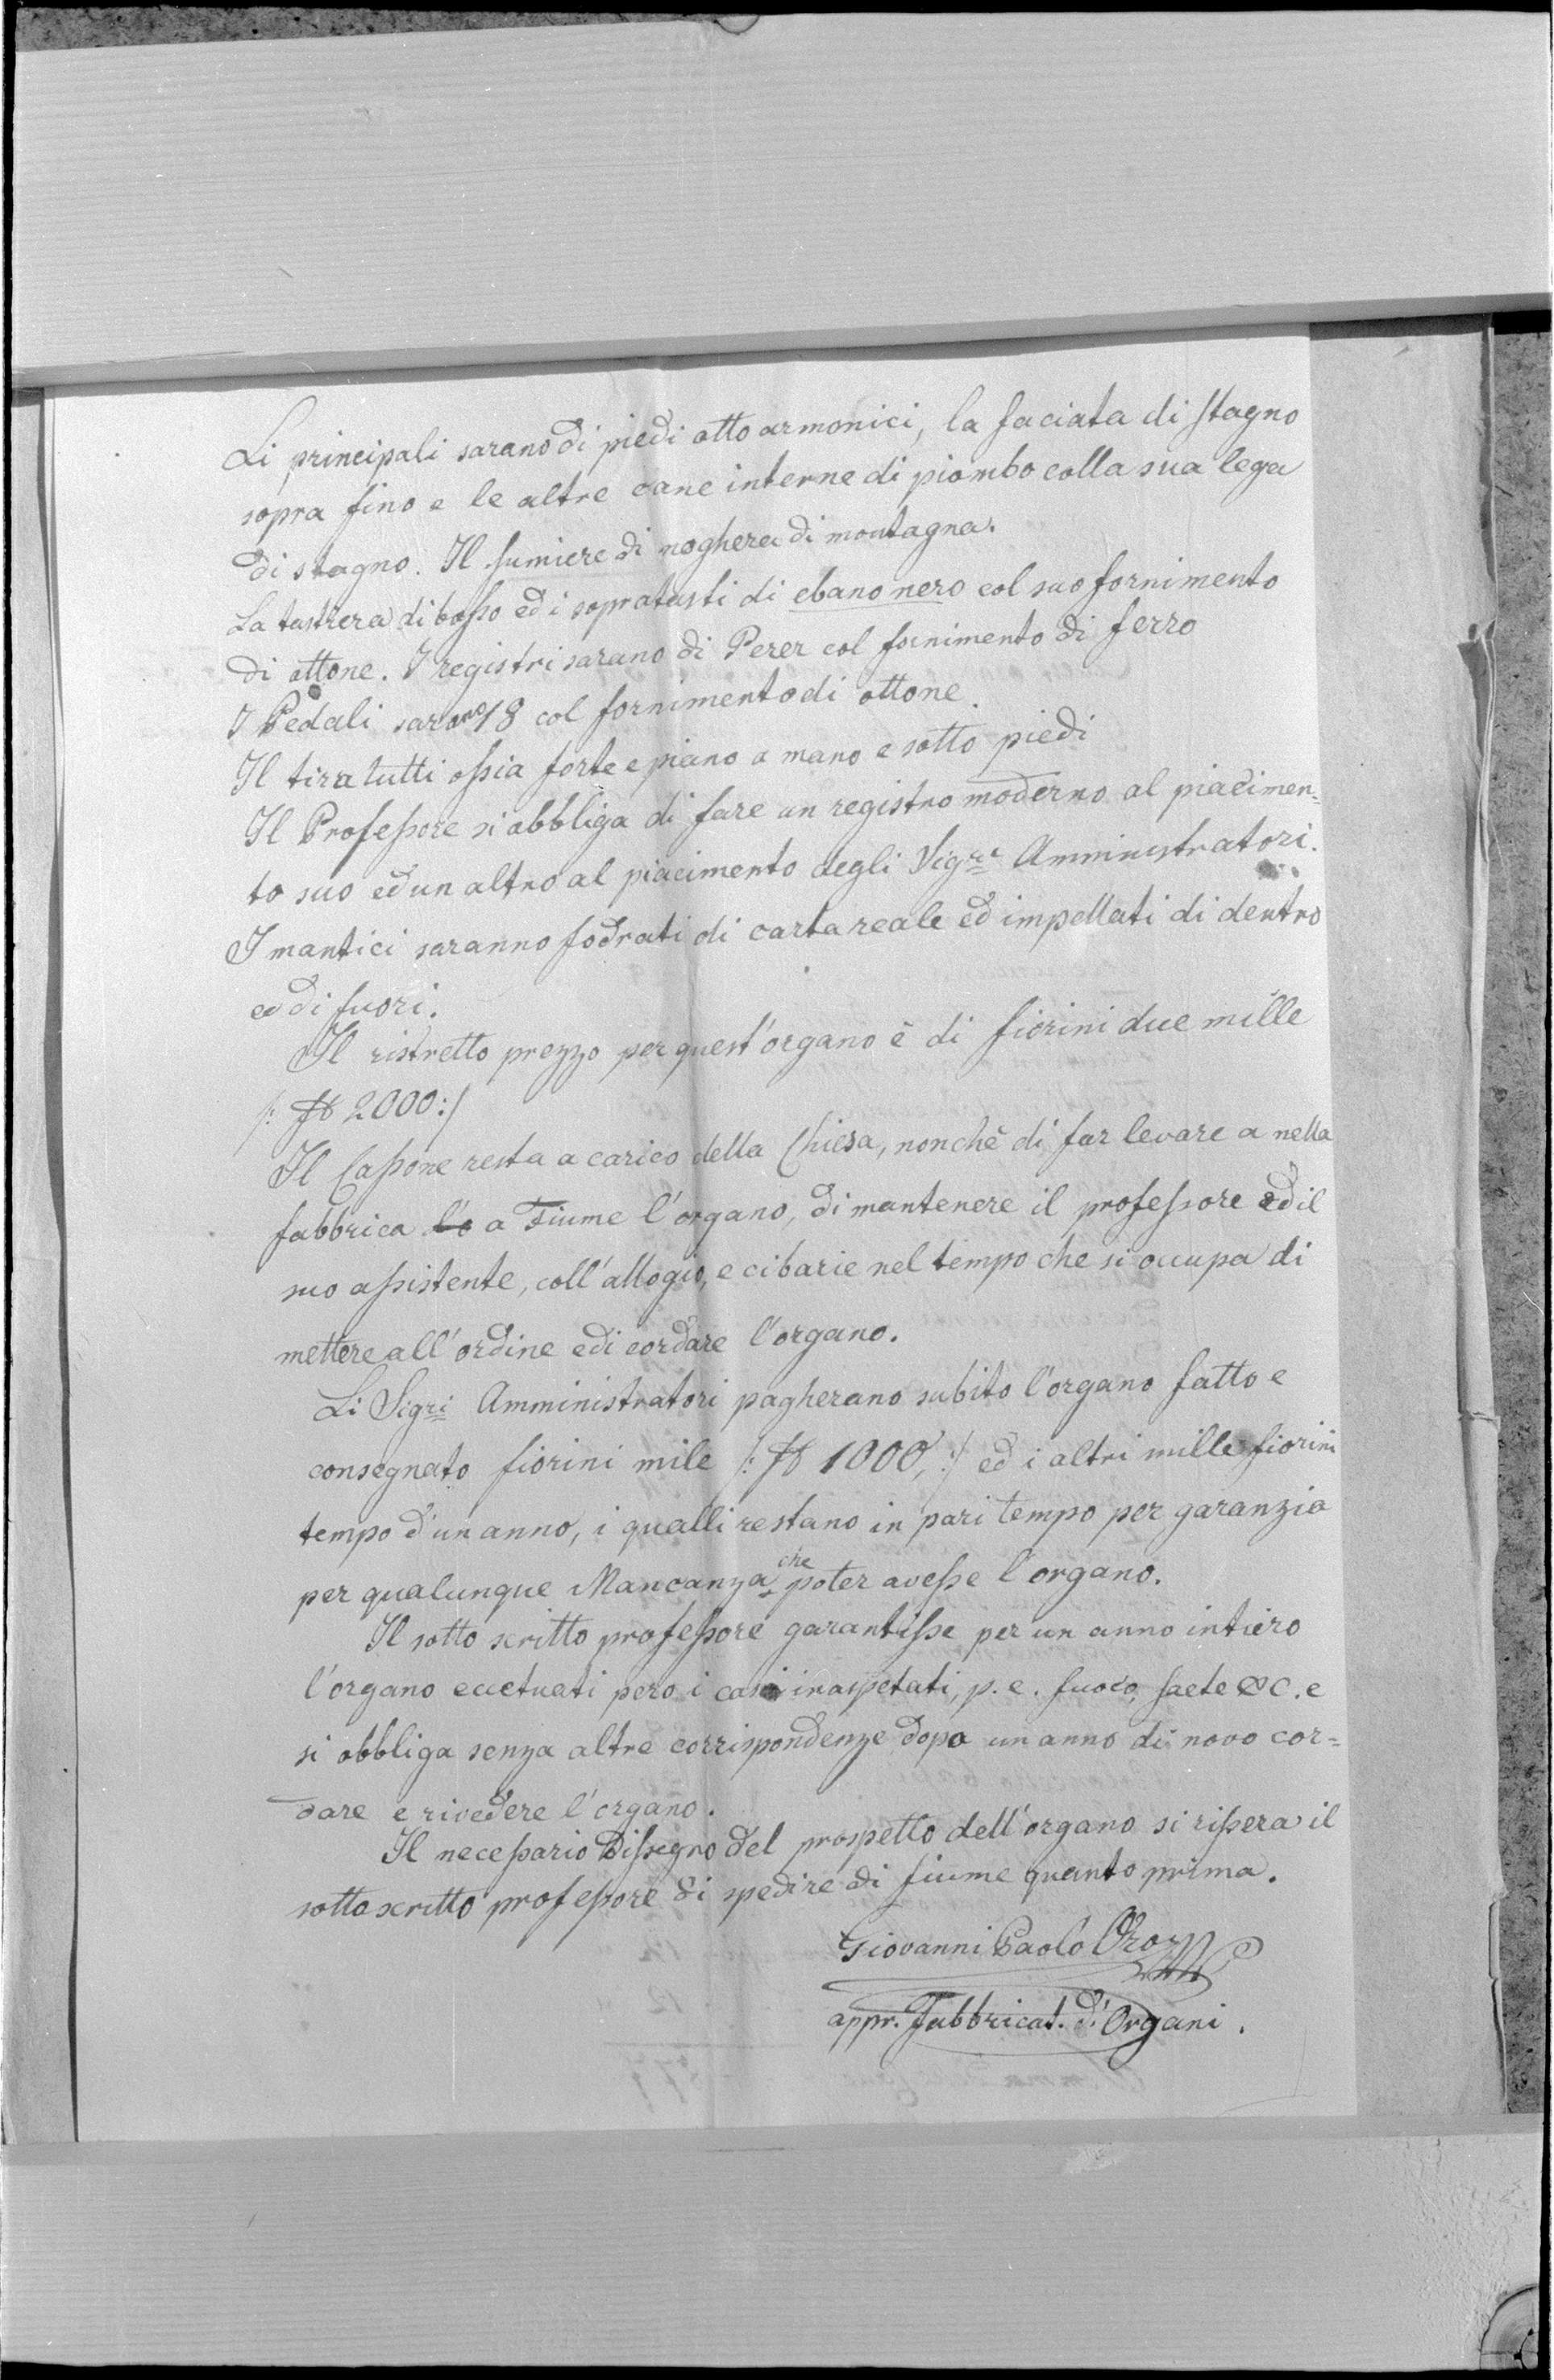 Li principali sarano di piedi otto armonici, la faciata di stagno
sopra fino e le altre cane interne di piombo colla sua lega
di stagno. Il sumiere di noghera di montagna.
La tastiera di bosso ed i sopratasti di ebano nero col suo fornimento
di ottone. I registri sarano di Perer col fornimento di ferro
I Pedali sarano 18 col fornimento di ottone.
Il tira tutti ossia forte e piano a mano e sotto piedi
Il Professore si obbliga di fare un registro moderno al piacimen=
to suo ed un altro al piacimento degli Sigri Amministratori.
I mantici saranno fodrati di carta reale ed impellati di dentro
e di fuori.
Il ristretto prezzo per quest'organo è di fiorini due mille
/: f 2000:/
Il Cassone resta a carico della Chiesa, nonchè di far levare a nella
fabbrica l'o a Fiume l'organo, di mantenere il professore ed il
suo assistente, coll'allogio, e cibarie nel tempo che si ocupa di
mettere all'ordine e di cordare l'organo.
Li Sigri Amministratori pagherano subito l'organo fatto e
consegnato fiorini mile /: f 1000, :/ ed i altri mille fiorini
tempo d'un anno, i qualli restano in pari tempo per garanzia
per qualunque Mancanza che poter avesse l'organo.
Il sotto scritto professore garantisse per un anno intiero
l'organo eccetuati pero i casi inaspetati, p. e. fuoco, saete &c. e
si obbliga senza altre corrispondenze dopo un anno di novo cor=
dare e rivedere l'organo.
Il necessario Dissegno del prospetto dell'organo si rissera il
sottoscritto professore di spedire di fiume quanto prima.
Giovanni Paolo
appr. Fabbricat. d'Organi.